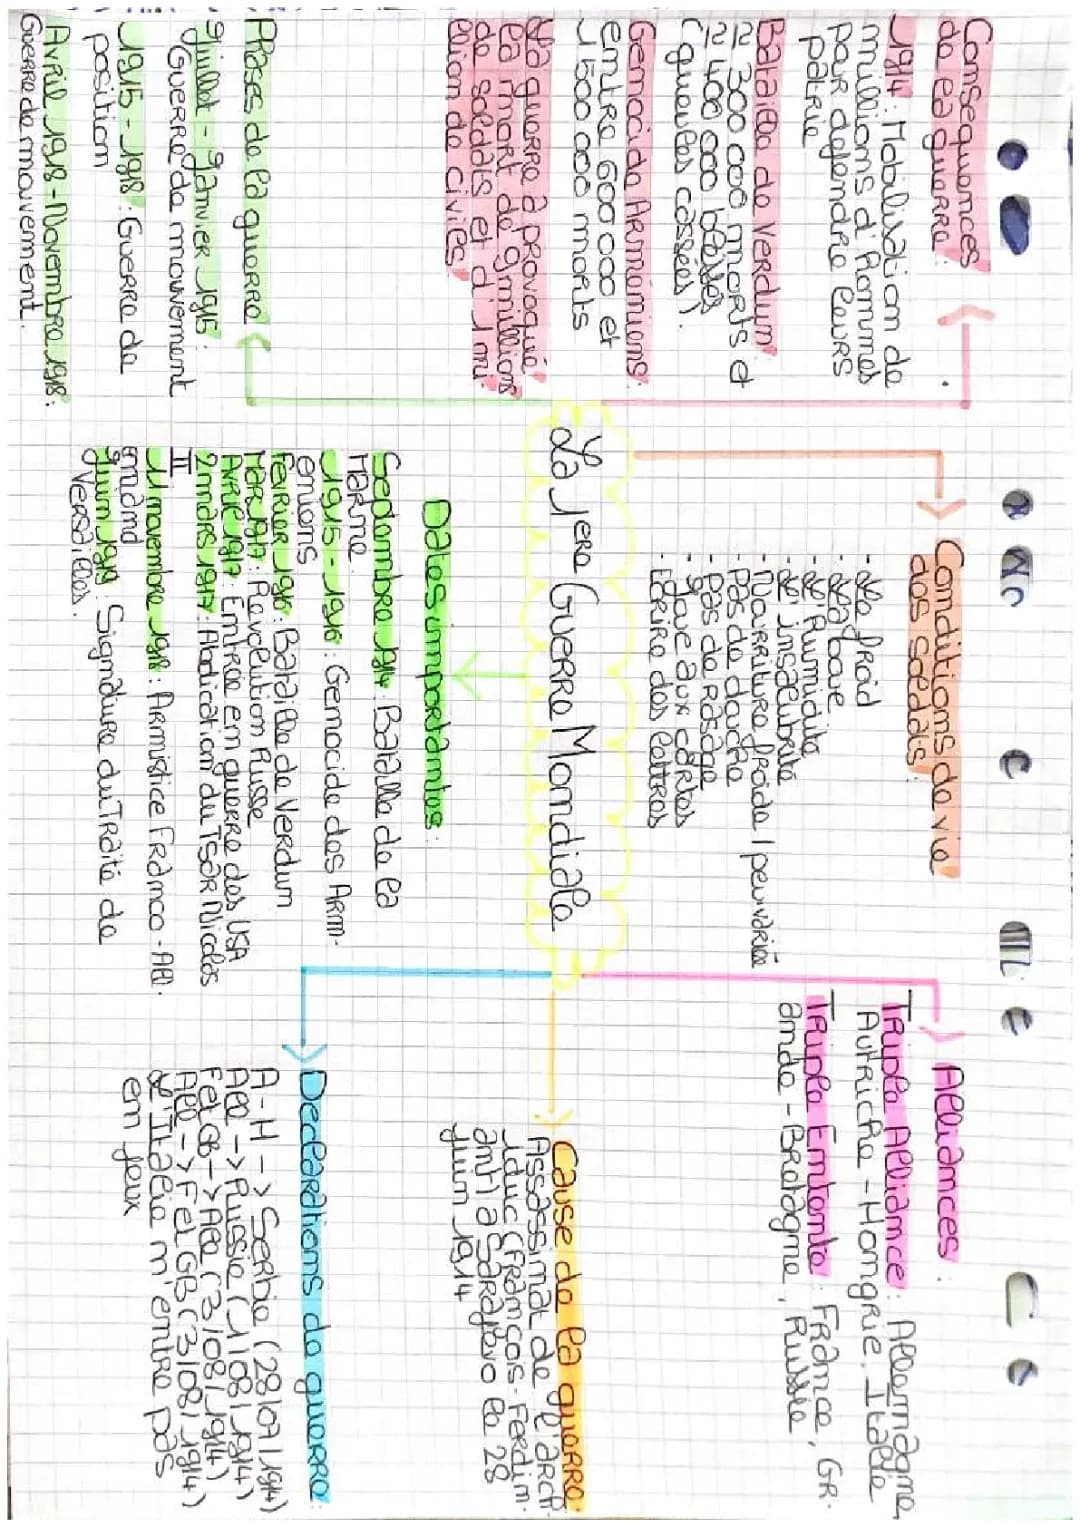 La 1ere Guerre Mondiale
Consequences
de la guerre :
1914 : Mobilisation de
millions d'hommes
par défendre leurs
patrie
Bataille de Verdun
≈ 300 000 morts et
≈ 400 000 blessés
(gueules cassées).
Genocide Arméniens :
entre 600 000 et
1 500 000 morts
La guerre a provoqué
la mort de 9 millions
de soldats et d'1 mi-
llion de civiles.
Phases de la guerre
Juillet - Janvier 1915 :
Guerre de mouvement
1915 - 1918 : Guerre de
position
Avril 1918 - Novembre 1918 :
Guerre de mouvement.
Conditions de vie
des soldats :
- Le froid
- La boue
- L'humidité
- L'insalubrité
- Nourriture froide / peu variée
- Pas de douche
- Pas de rasage
- Joue aux cartes
- Ecrire des lettres
Dates importantes :
Septembre 1914 : Bataille de la
Marne
1915 - 1916 : Genocide des Arm-
eniens
Fevrier 1916 : Bataille de Verdun
Mar 1917 : Revolution Russe
Avril 1917 : Entrée en guerre des USA
2 mars 1917 : Abdication du Tsar Nicolas
II
11 novembre 1918 : Armistice Franco - All.
emand
Juin 1919 : Signature du Traité de
Versailles.
Alliances :
Triple Alliance : Allemagne,
Autriche - Hongrie, Italie
Triple Entente : France, Gr-
ande - Bretagne, Russie
Cause de la guerre :
Assassinat de l'arch-
iduc (François - Ferdin-
ant) à Sarajevo le 28
juin 1914
Declarations de guerre :
A - H -> Serbie (28/07/1914)
All -> Russie (1/08/1914)
F et GB -> All (3/08/1914)
All -> F et GB (3/08/1914)
L'Italie n'entre pas
en jeux